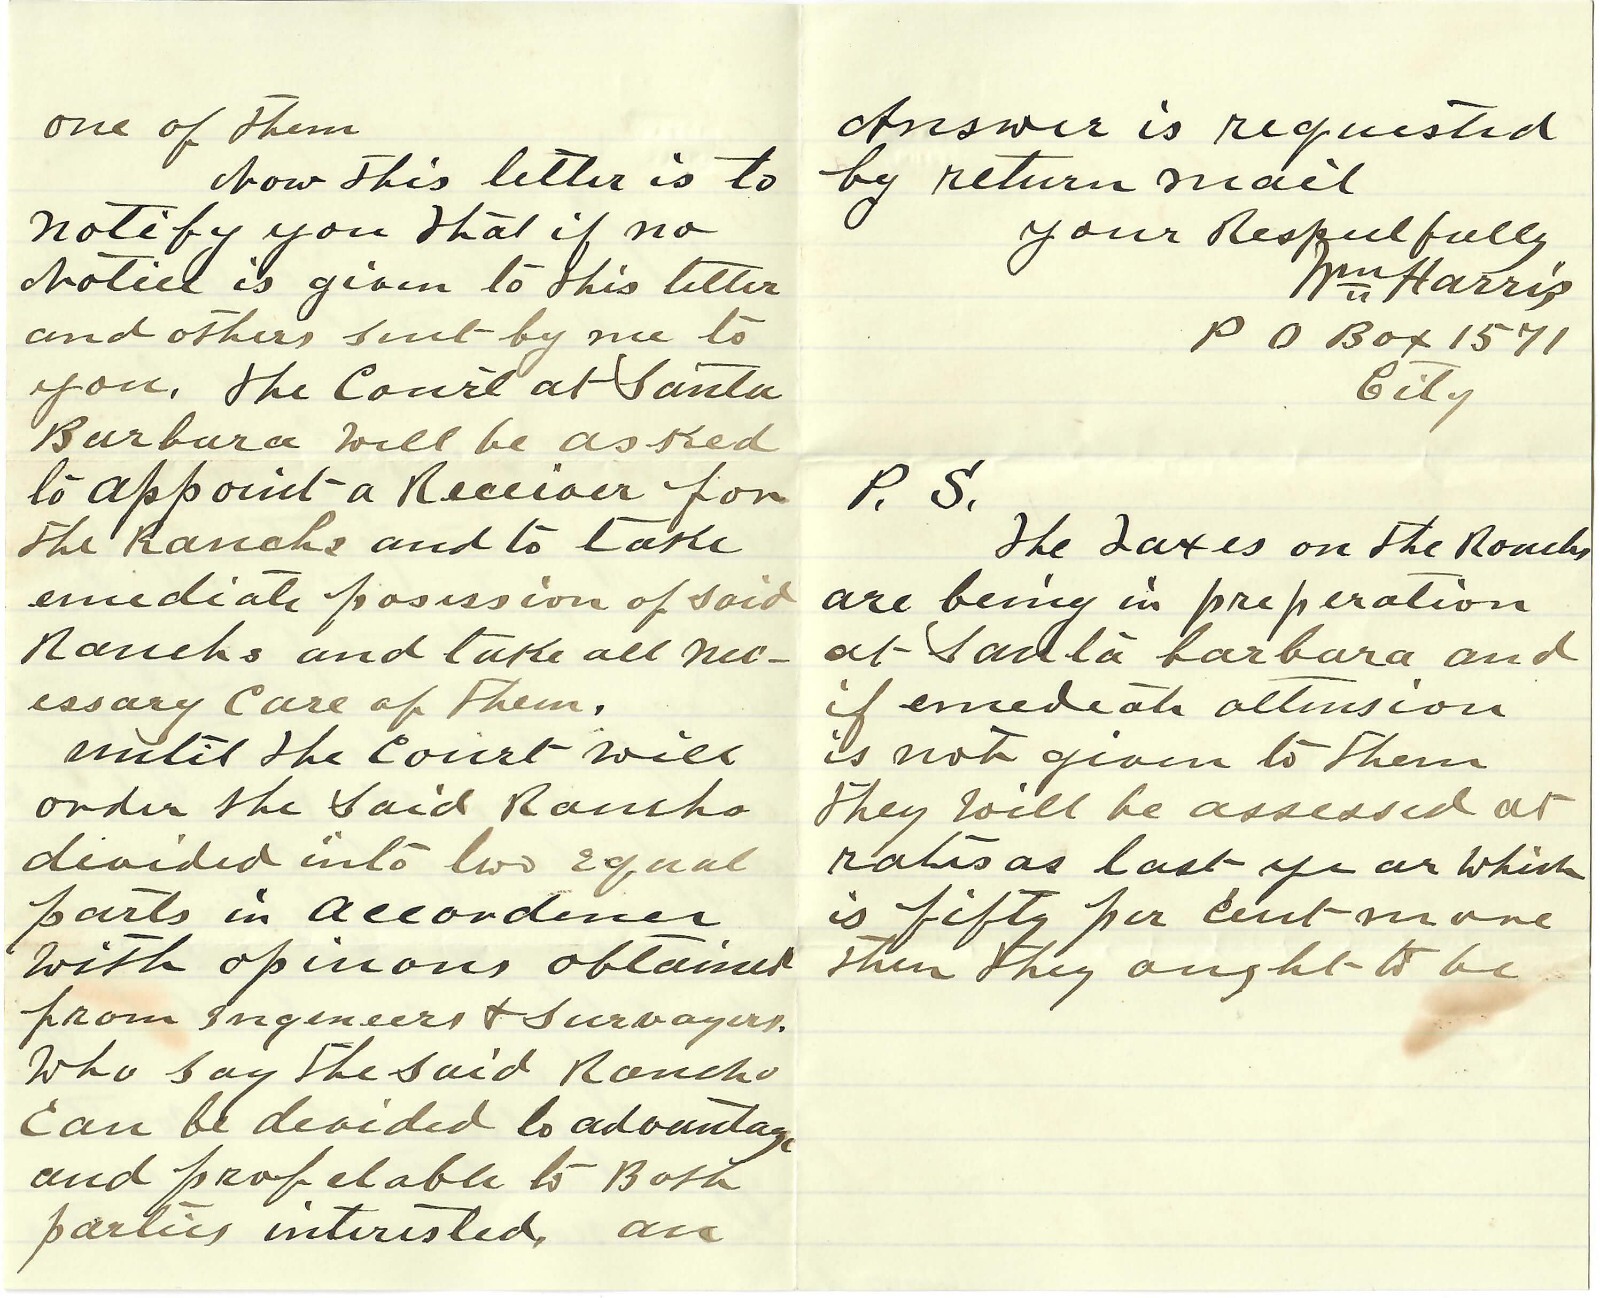 one of them
Now this letter is to
notify you that if no
Notice is given to this letter
and others sent by me to
you. the Court at Santa
Barbara will be asked
to appoint a Receiver for
the Ranchs and to take
emediate posession of said
Ranchs and take all nec-
essary Care of them.
until the Court will
order the said Rancho
devided into two equal
parts in accordence
with opinons obtained
from Ingeneers & Survayers.
Who say the said Rancho
Can be devided to advantage
and profetable to Both
parties interested. an
Answer is requested
by return mail
your Respectfully
Wm Harris
P O Box 1571
City
P. S.
The Taxes on the Ranchs
are being in preperation
at Santa barbara and
if emediate attension
is not given to them
they will be assessed at
rates as last year which
is fifty per cent more
then they ought to be